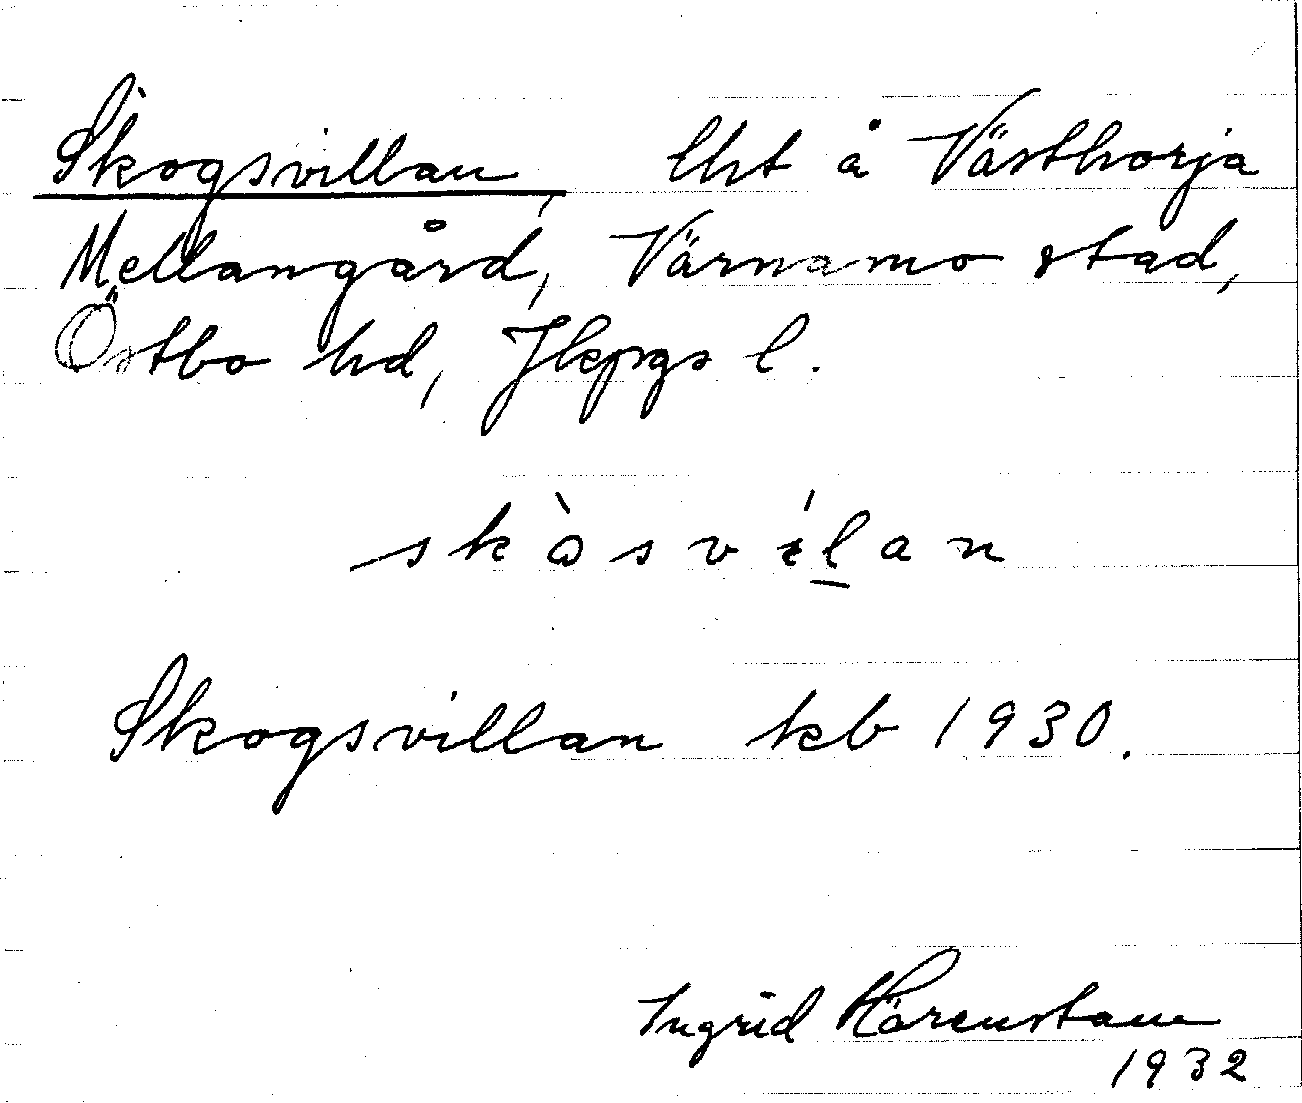 Skogsvillan, lht å Västhorja
Mellangård, Värnamo stad,
Östbo hd, Jkpgs l.
skòsvílan
Skogsvillan kb 1930.
Ingrid Härenstam
1932